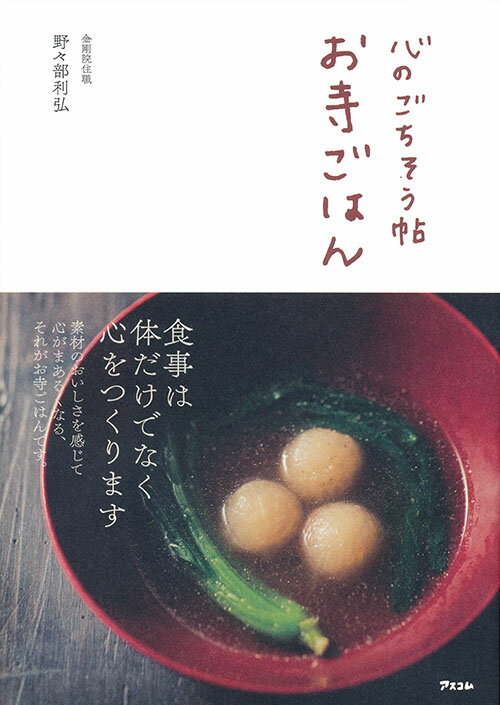 心のごちそう帖
お寺ごはん
金剛院住職
野々部利弘
食事は
体だけでなく
心をつくります
素材のおいしさを感じて
心がまあるくなる、
それがお寺ごはんです。
アスコム